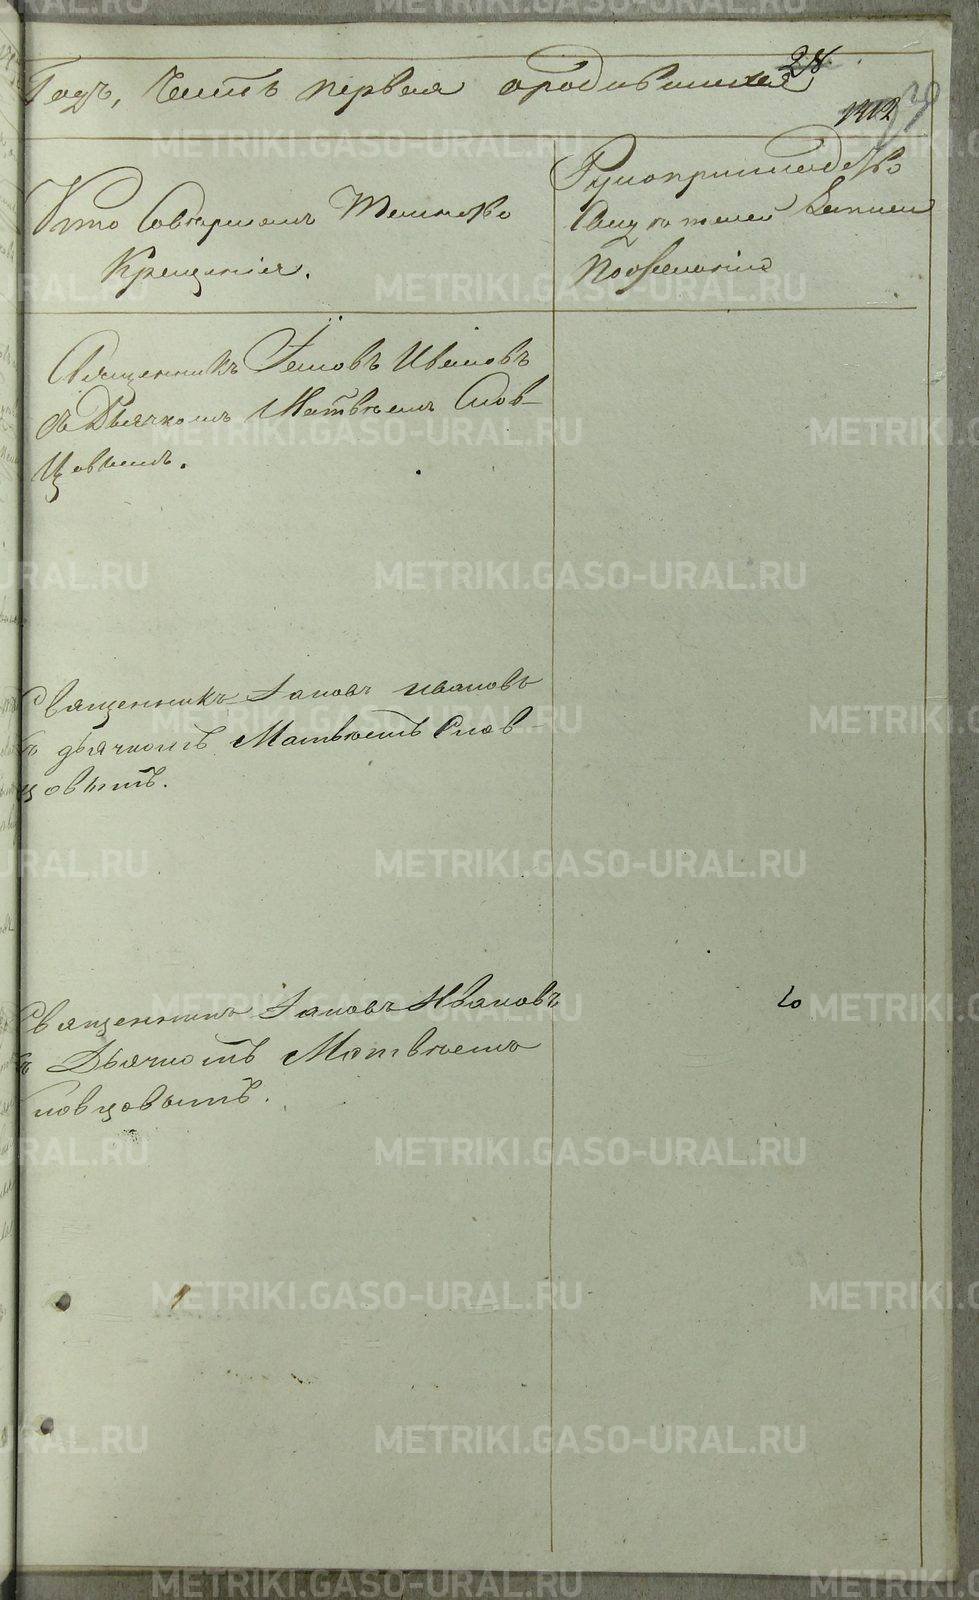 28.
Годъ, Часть первая ородившихся
1112
39
Кто Совершалъ Таинство
Крещенія.
Рукоприкладство
Свидетелей Записи
По желанію
Священникъ Іаковъ Ивановъ
съ Дьячкомъ Матвѣемъ Слов-
цовымъ.
Священникъ Іаковъ Ивановъ
съ дьячкомъ Матвѣемъ Слов-
цовымъ.
Священникъ Іаковъ Ивановъ
съ Дьячкомъ Матвѣемъ
Словцовымъ.
METRIKI.GASO-URAL.RU